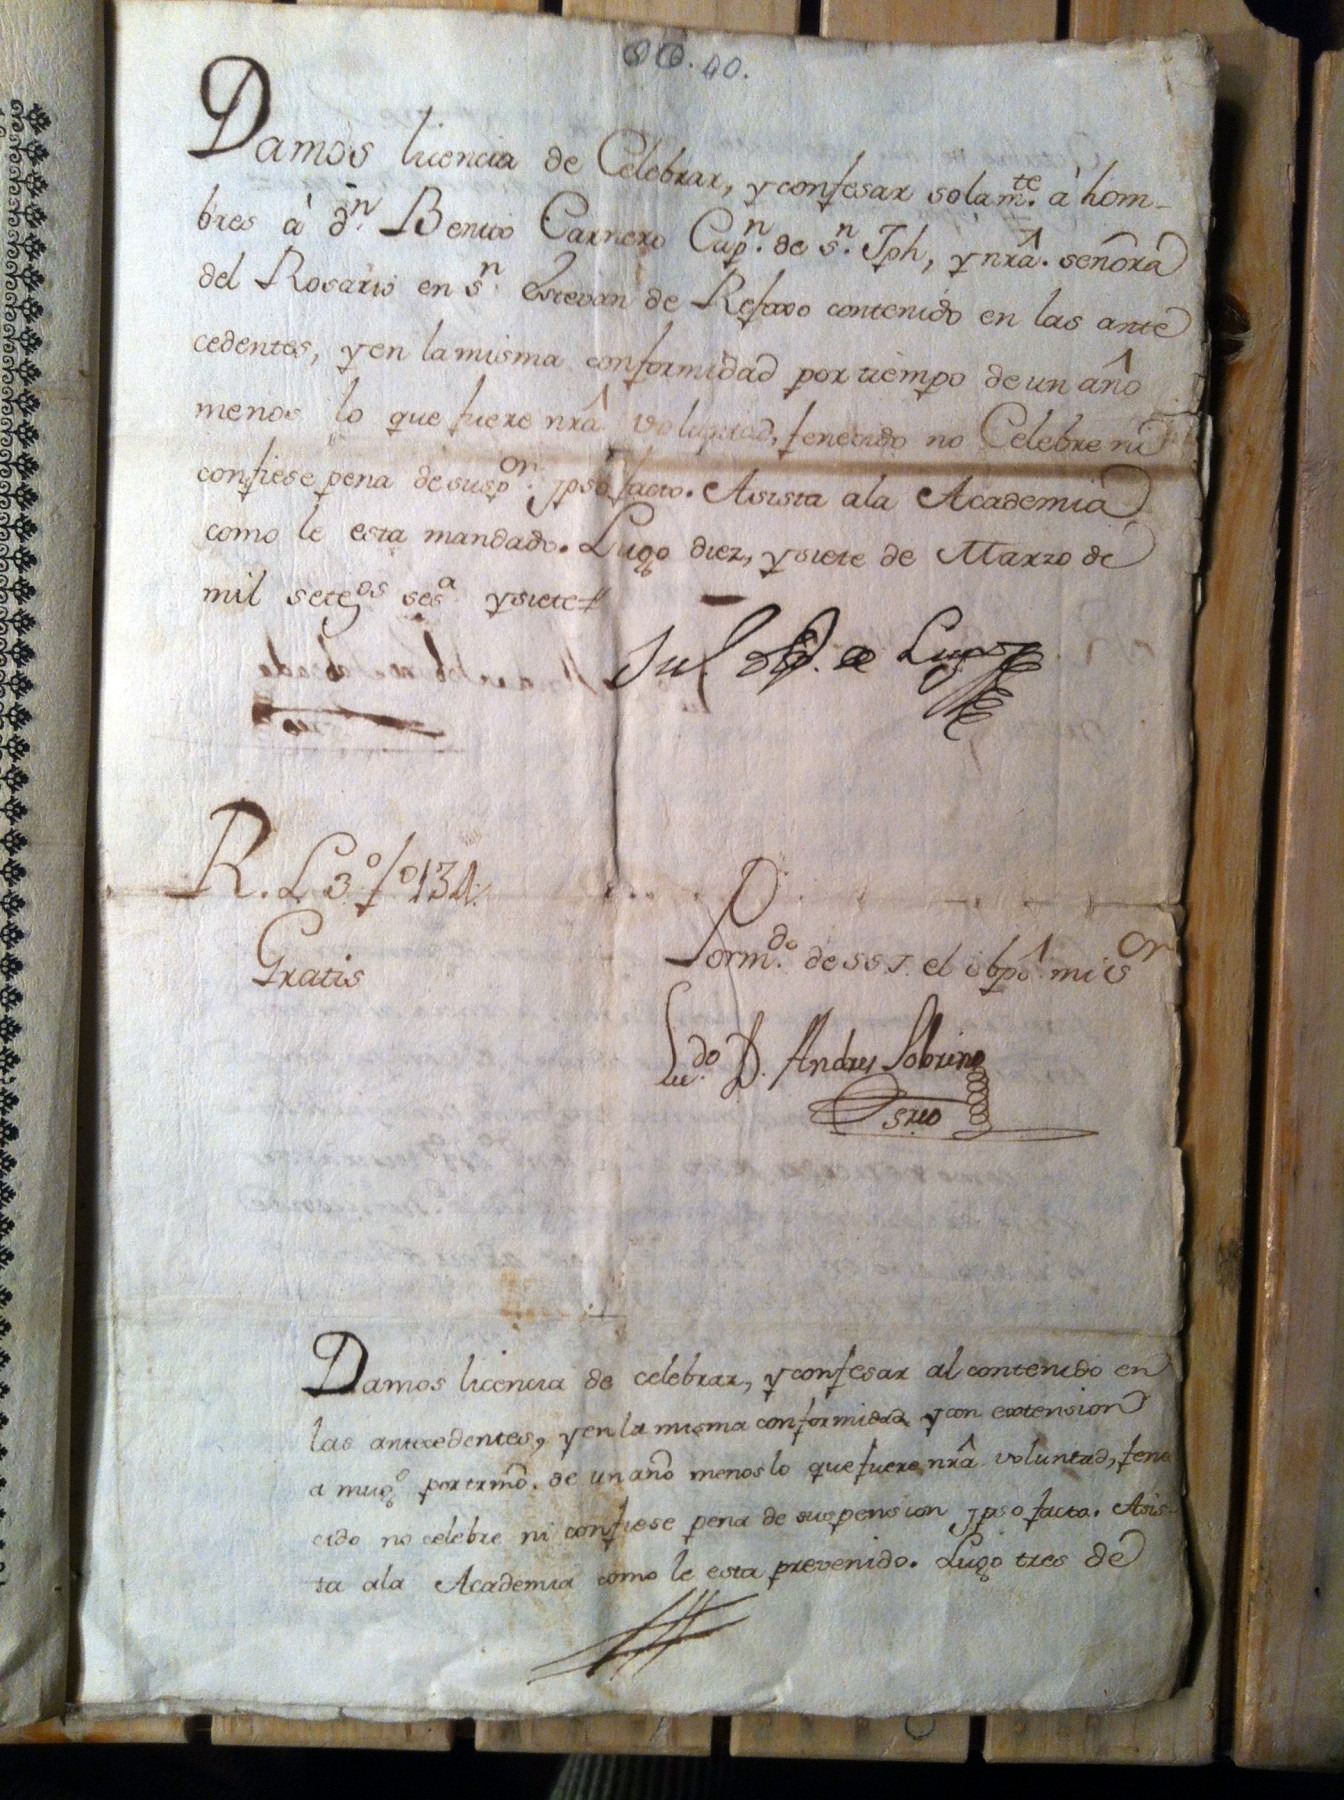 40.
Damos licencia de Celebrar, y confesar solam.te â hom-
bres â d.n Benito Carnero Cap.n de s.n Jph, y nrâ. señora
del Rosario en s.n Estevan de Refoxo contenido en las ante
cedentes, y en la misma conformidad por tiempo de un año
menos lo que fuere nrâ voluntad, fenecido no Celebre ni
confiese pena de susp.on ypso facto. Asista ala Academia
como le esta mandado. Lugo diez, y siete de Marzo de
mil sete.os ses.a y siete
de Lugo
R. L 3.o fo 134.
Gratis
Por m.do de SSJ. el obpô mi s.or
Lic.do D. Andres Sobrino
srio
Damos licencia de celebrar, y confesar al contenido en
las antecedentes, y en la misma conformidad y con extension
a mug.o por termô. de un año menos lo que fuere nrâ voluntad, fene
cido no celebre ni confiese pena de suspension ypso facto. Asis-
ta ala Academia como le esta prevenido. Lugo tres de